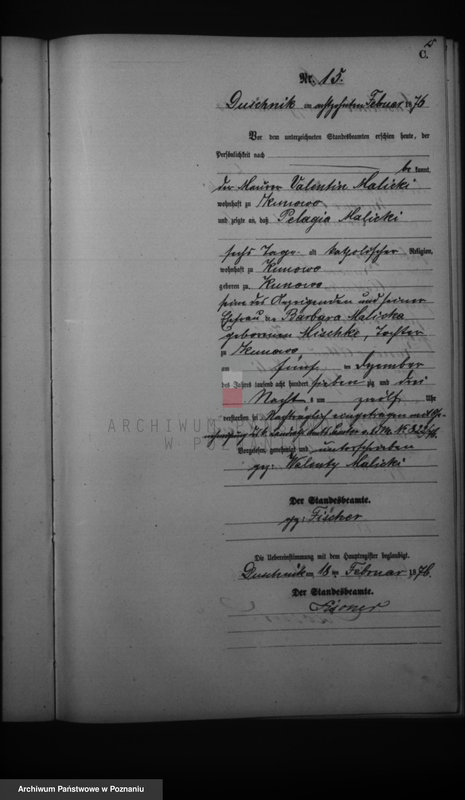 C.
Nr. 15.
Duschnik am achtzehnten Februar 1876
Vor dem unterzeichneten Standesbeamten erschien heute, der
Persönlichkeit nach
be kannt,
der Maurer Valentin Malicki
wohnhaft zu Kunowo
und zeigte an, daß Pelagia Malicki
sechs Tage alt katholischer Religion,
wohnhaft zu Kunowo
geboren zu Kunowo
des Anzeigenden und seiner
Ehefrau Barbara Malicka
geborenen Mischke, Tochter
zu Kunowo,
am fünf ten Dezember
des Jahres tausend acht hundert sieben zig und drei
Nacht s um zwölf Uhr
verstorben sei Nachträglich eingetragen
Vorgelesen, genehmigt und unterschrieben
gez. Walenty Malicki
Der Standesbeamte.
gez: Fischer
Die Uebereinstimmung mit dem Hauptregister beglaubigt.
Duschnik am 18 ten Februar 1876.
Der Standesbeamte.
Fischer
ARCHIWUM
W P
Archiwum Państwowe w Poznaniu